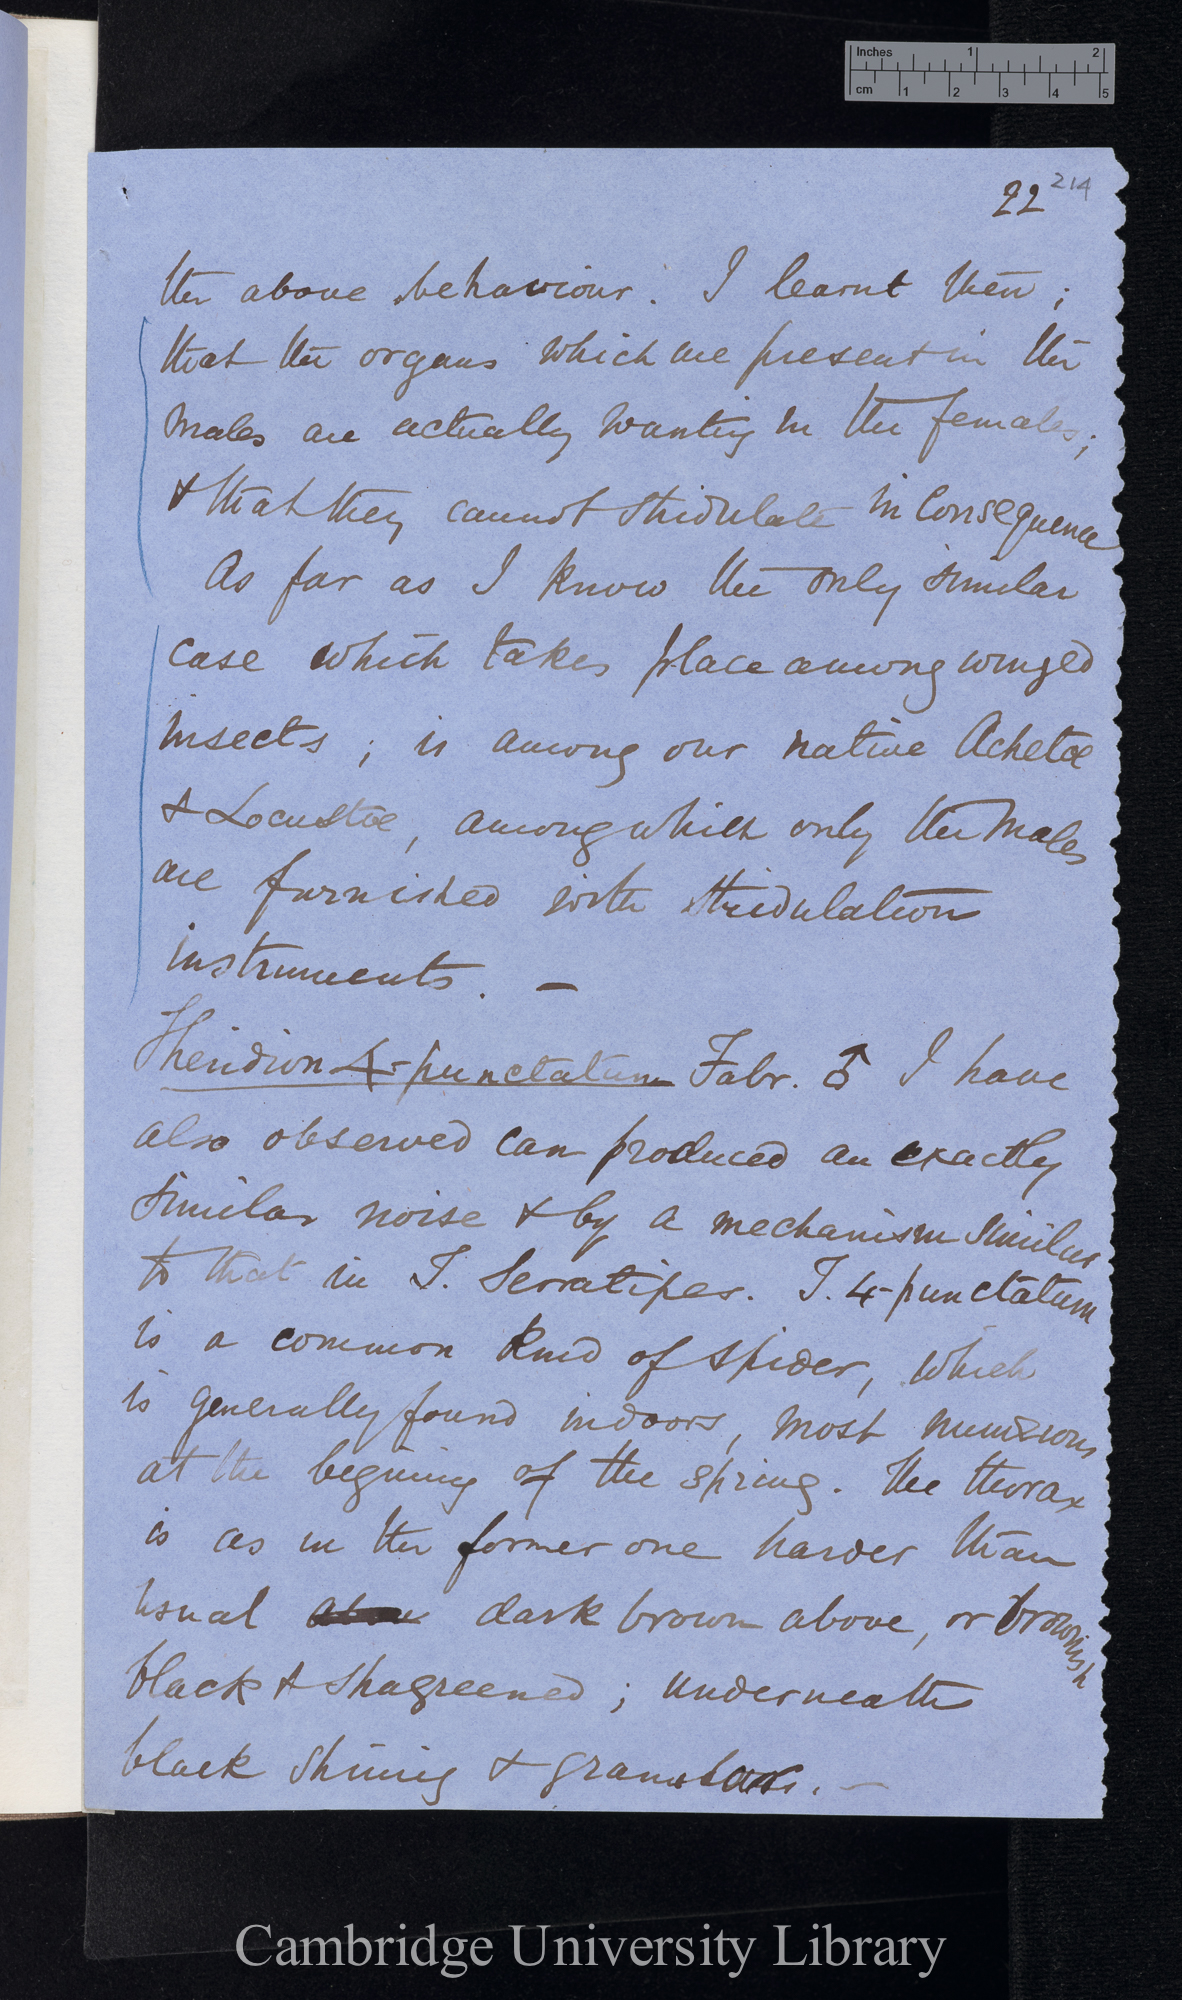 Inches 1 2
cm 1 2 3 4 5
22 214
the above behaviour. I learnt then;
that the organs which are present in the
males are actually wanting in the females;
& that they cannot stridulate in consequence
As far as I know the only similar
case which takes place among winged
insects; is among our native Achetæ
& Locustæ, among which only the males
are furnished with stridulation
instruments. —
Theridion 4-punctatum Fabr. ♂ I have
also observed can produced an exactly
similar noise & by a mechanism similar
to that in T. Serratipes. T. 4-punctatum
is a common kind of spider, which
is generally found indoors, most numerous
at the begining of the spring. The thorax
is as in the former one harder than
usual above dark brown above, or brownish
black & shagreened; underneath
black shining & granulous. —
Cambridge University Library